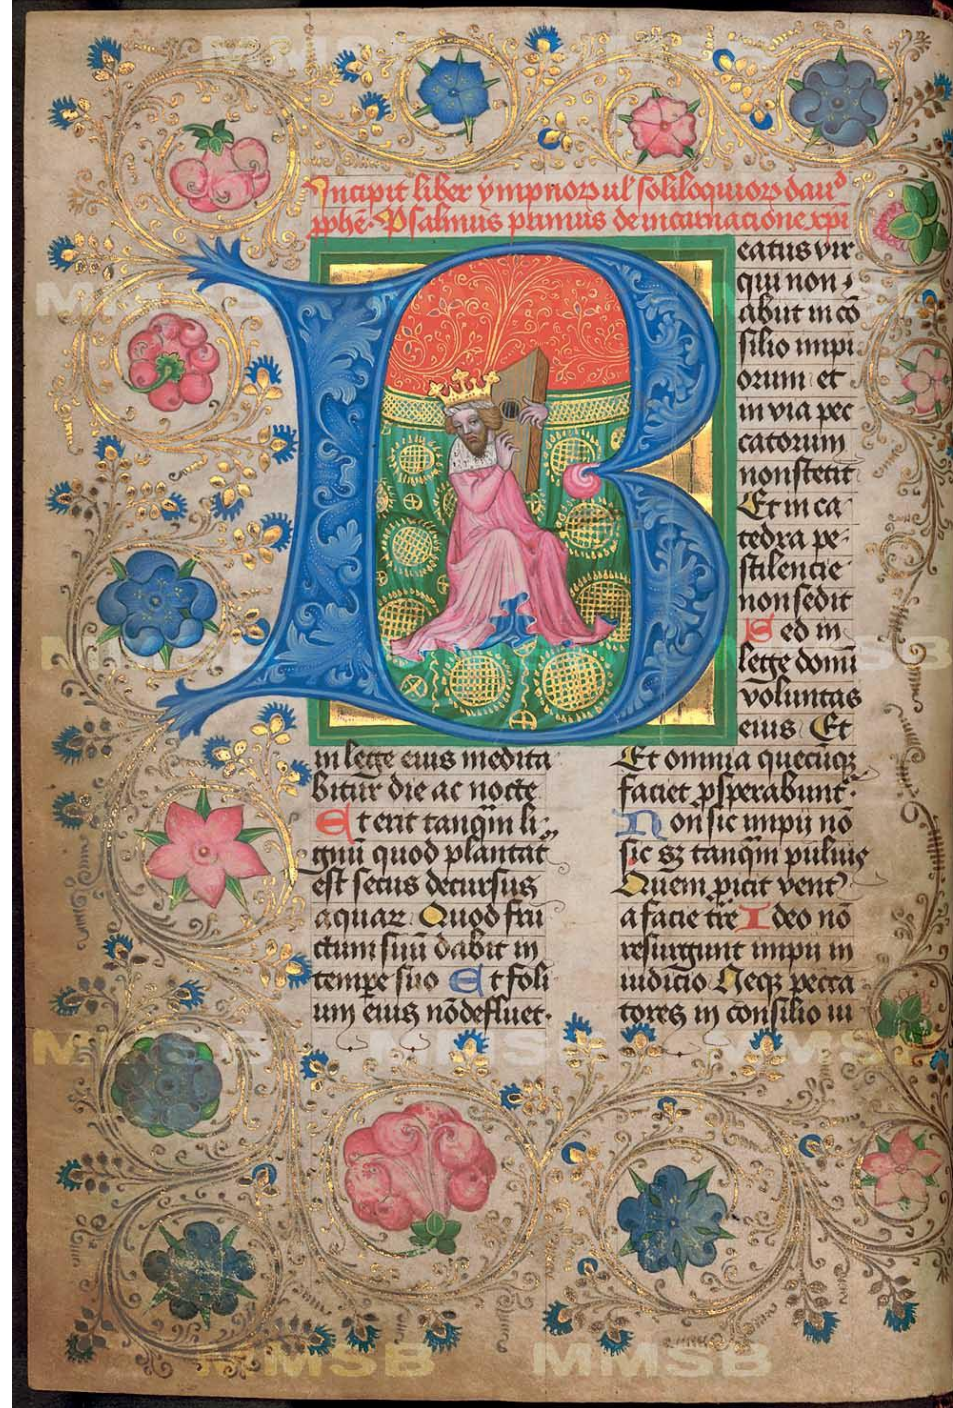 Incipit liber ympnoꝝ ul' soliloquioꝝ dauᵈ
ꝓphē. Psalmus primus de incarnacione xp̄i
Beatus vir
qui non
abiit in cō
silio impi
orum et
in via pec
catorum
non stetit
Et in ca
tedra pe
stilencie
non sedit
Sed in
lege domī
voluntas
eius Et
in lege eius medita
bitur die ac nocte
Et erit tanq̄m li
gnū quod plantat̄
est secus decursus
aquaꝝ Quod fru
ctum suū dabit in
temp̄e suo Et foli
um eius nō defluet.
Et omnia quecūqꝫ
faciet ꝓsperabunt̄.
Non sic impii nō
sic sꝫ tanq̄m puluis
Quem ꝓicit vent᾿
a facie tr̄e Ideo nō
resurgunt impii in
iudicio Neqꝫ pecca
tores in consilio iu
MMSB